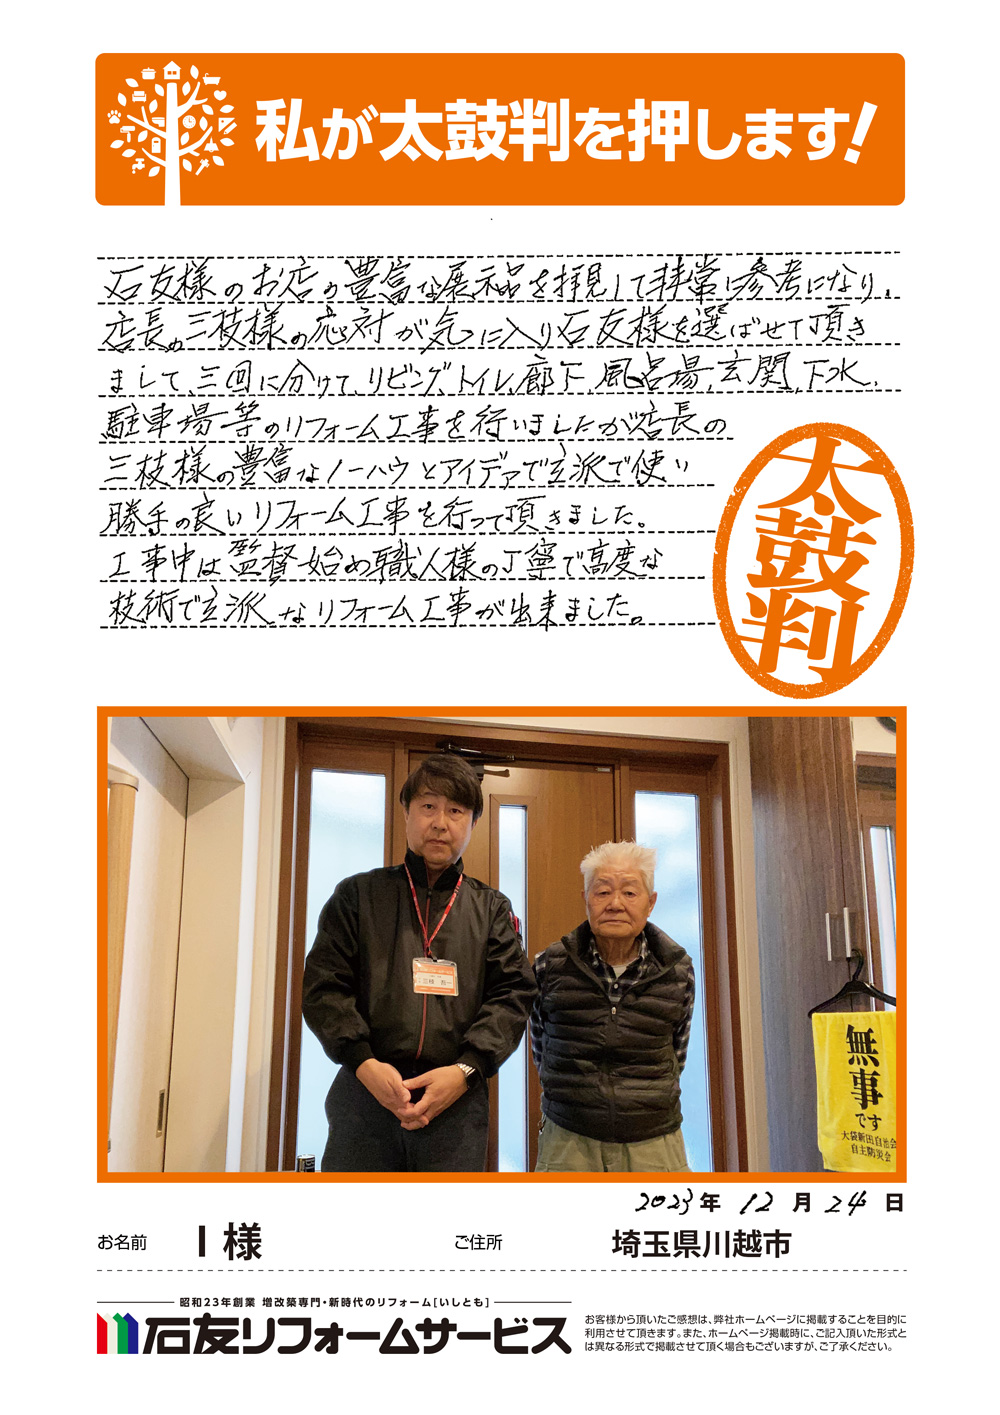 私が太鼓判を押します!
石友様のお店の豊富な展示品を拝見して非常に参考になり、
店長の三枝様の応対が気に入り石友様を選ばせて頂き
まして、三回に分けて、リビング、トイレ、廊下、風呂場、玄関、下水、
駐車場等のリフォーム工事を行いましたが店長の
三枝様の豊富なノーハウとアイデアで立派で使い
勝手の良いリフォーム工事を行って頂きました。
工事中は監督始め職人様の丁寧で高度な
技術で立派なリフォーム工事が出来ました。
太鼓判
無事
です
大袋新田自治会
自主防災会
2023年 12月 24日
お名前 I 様 ご住所 埼玉県川越市
昭和23年創業 増改築専門・新時代のリフォーム[いしとも]
石友リフォームサービス
お客様から頂いたご感想は、弊社ホームページに掲載することを目的に
利用させて頂きます。また、ホームページ掲載時に、ご記入頂いた形式と
は異なる形式で掲載させて頂く場合もございますが、ご了承ください。